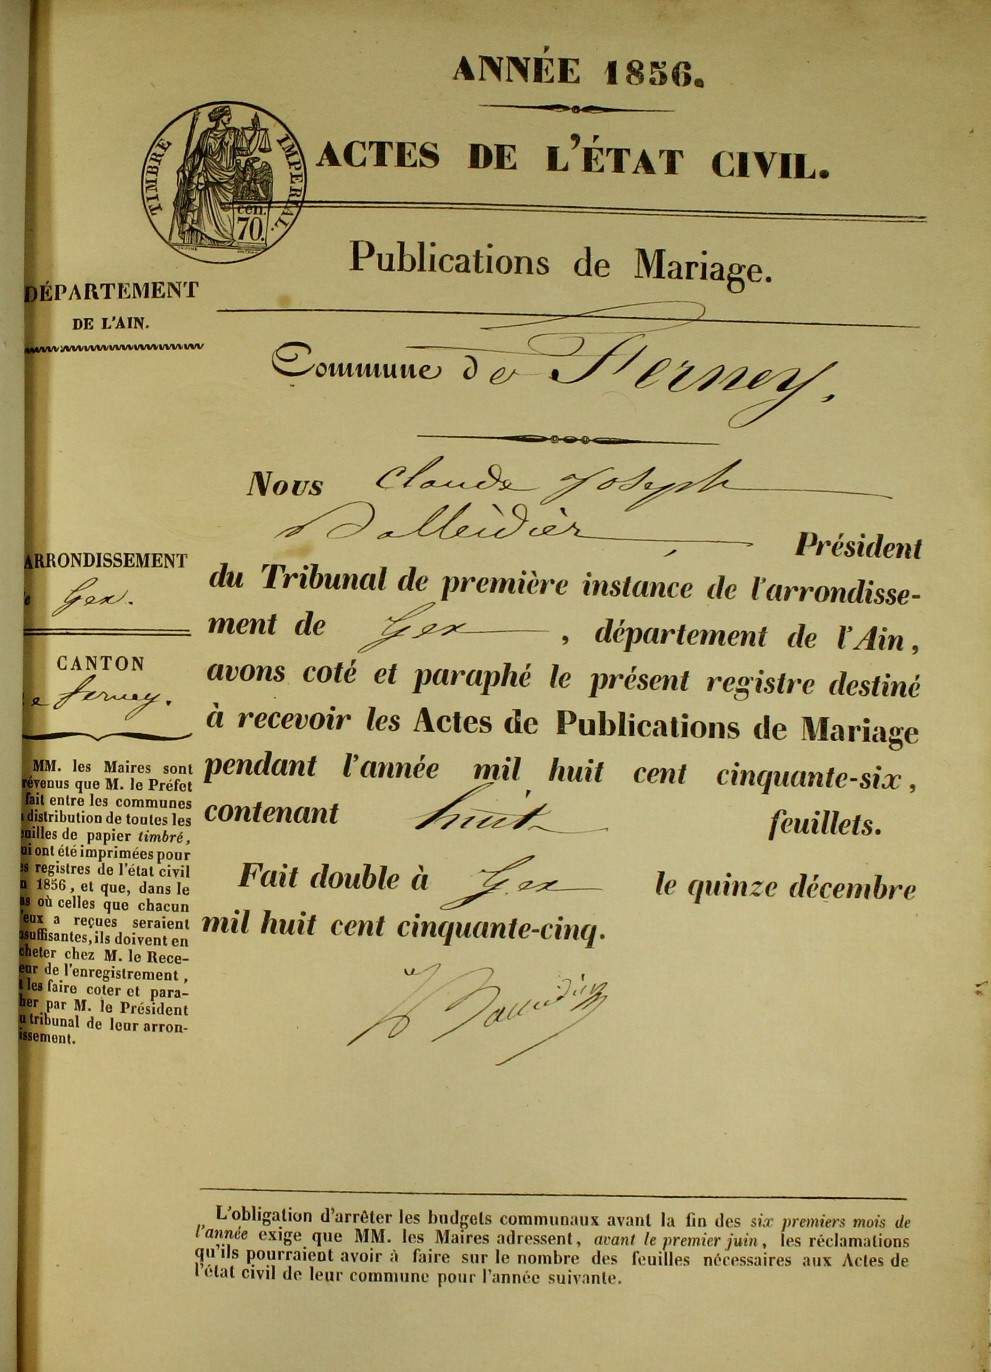 ANNÉE 1856.
ACTES DE L'ÉTAT CIVIL.
TIMBRE IMPERIAL.
cen.
70.
Publications de Mariage.
DÉPARTEMENT
DE L'AIN.
Commune de Ferney.
Nous Claude Joseph
Balleidier, Président
du Tribunal de première instance de l'arrondisse-
ment de Gex, département de l'Ain,
avons coté et paraphé le présent registre destiné
à recevoir les Actes de Publications de Mariage
pendant l'année mil huit cent cinquante-six,
contenant huit feuillets.
Fait double à Gex le quinze décembre
mil huit cent cinquante-cinq.
Balleidier
ARRONDISSEMENT
Gex.
CANTON
e ferney.
MM. les Maires sont
révenus que M. le Préfet
fait entre les communes
distribution de toutes les
uilles de papier timbré,
ui ont été imprimées pour
s registres de l'état civil
n 1856, et que, dans le
as où celles que chacun
'eux a reçues seraient
suffisantes, ils doivent en
cheter chez M. le Rece-
eur de l'enregistrement,
t les faire coter et para-
her par M. le Président
u tribunal de leur arron-
issement.
L'obligation d'arrêter les budgets communaux avant la fin des six premiers mois de
l'année exige que MM. les Maires adressent, avant le premier juin, les réclamations
qu'ils pourraient avoir à faire sur le nombre des feuilles nécessaires aux Actes de
l'état civil de leur commune pour l'année suivante.